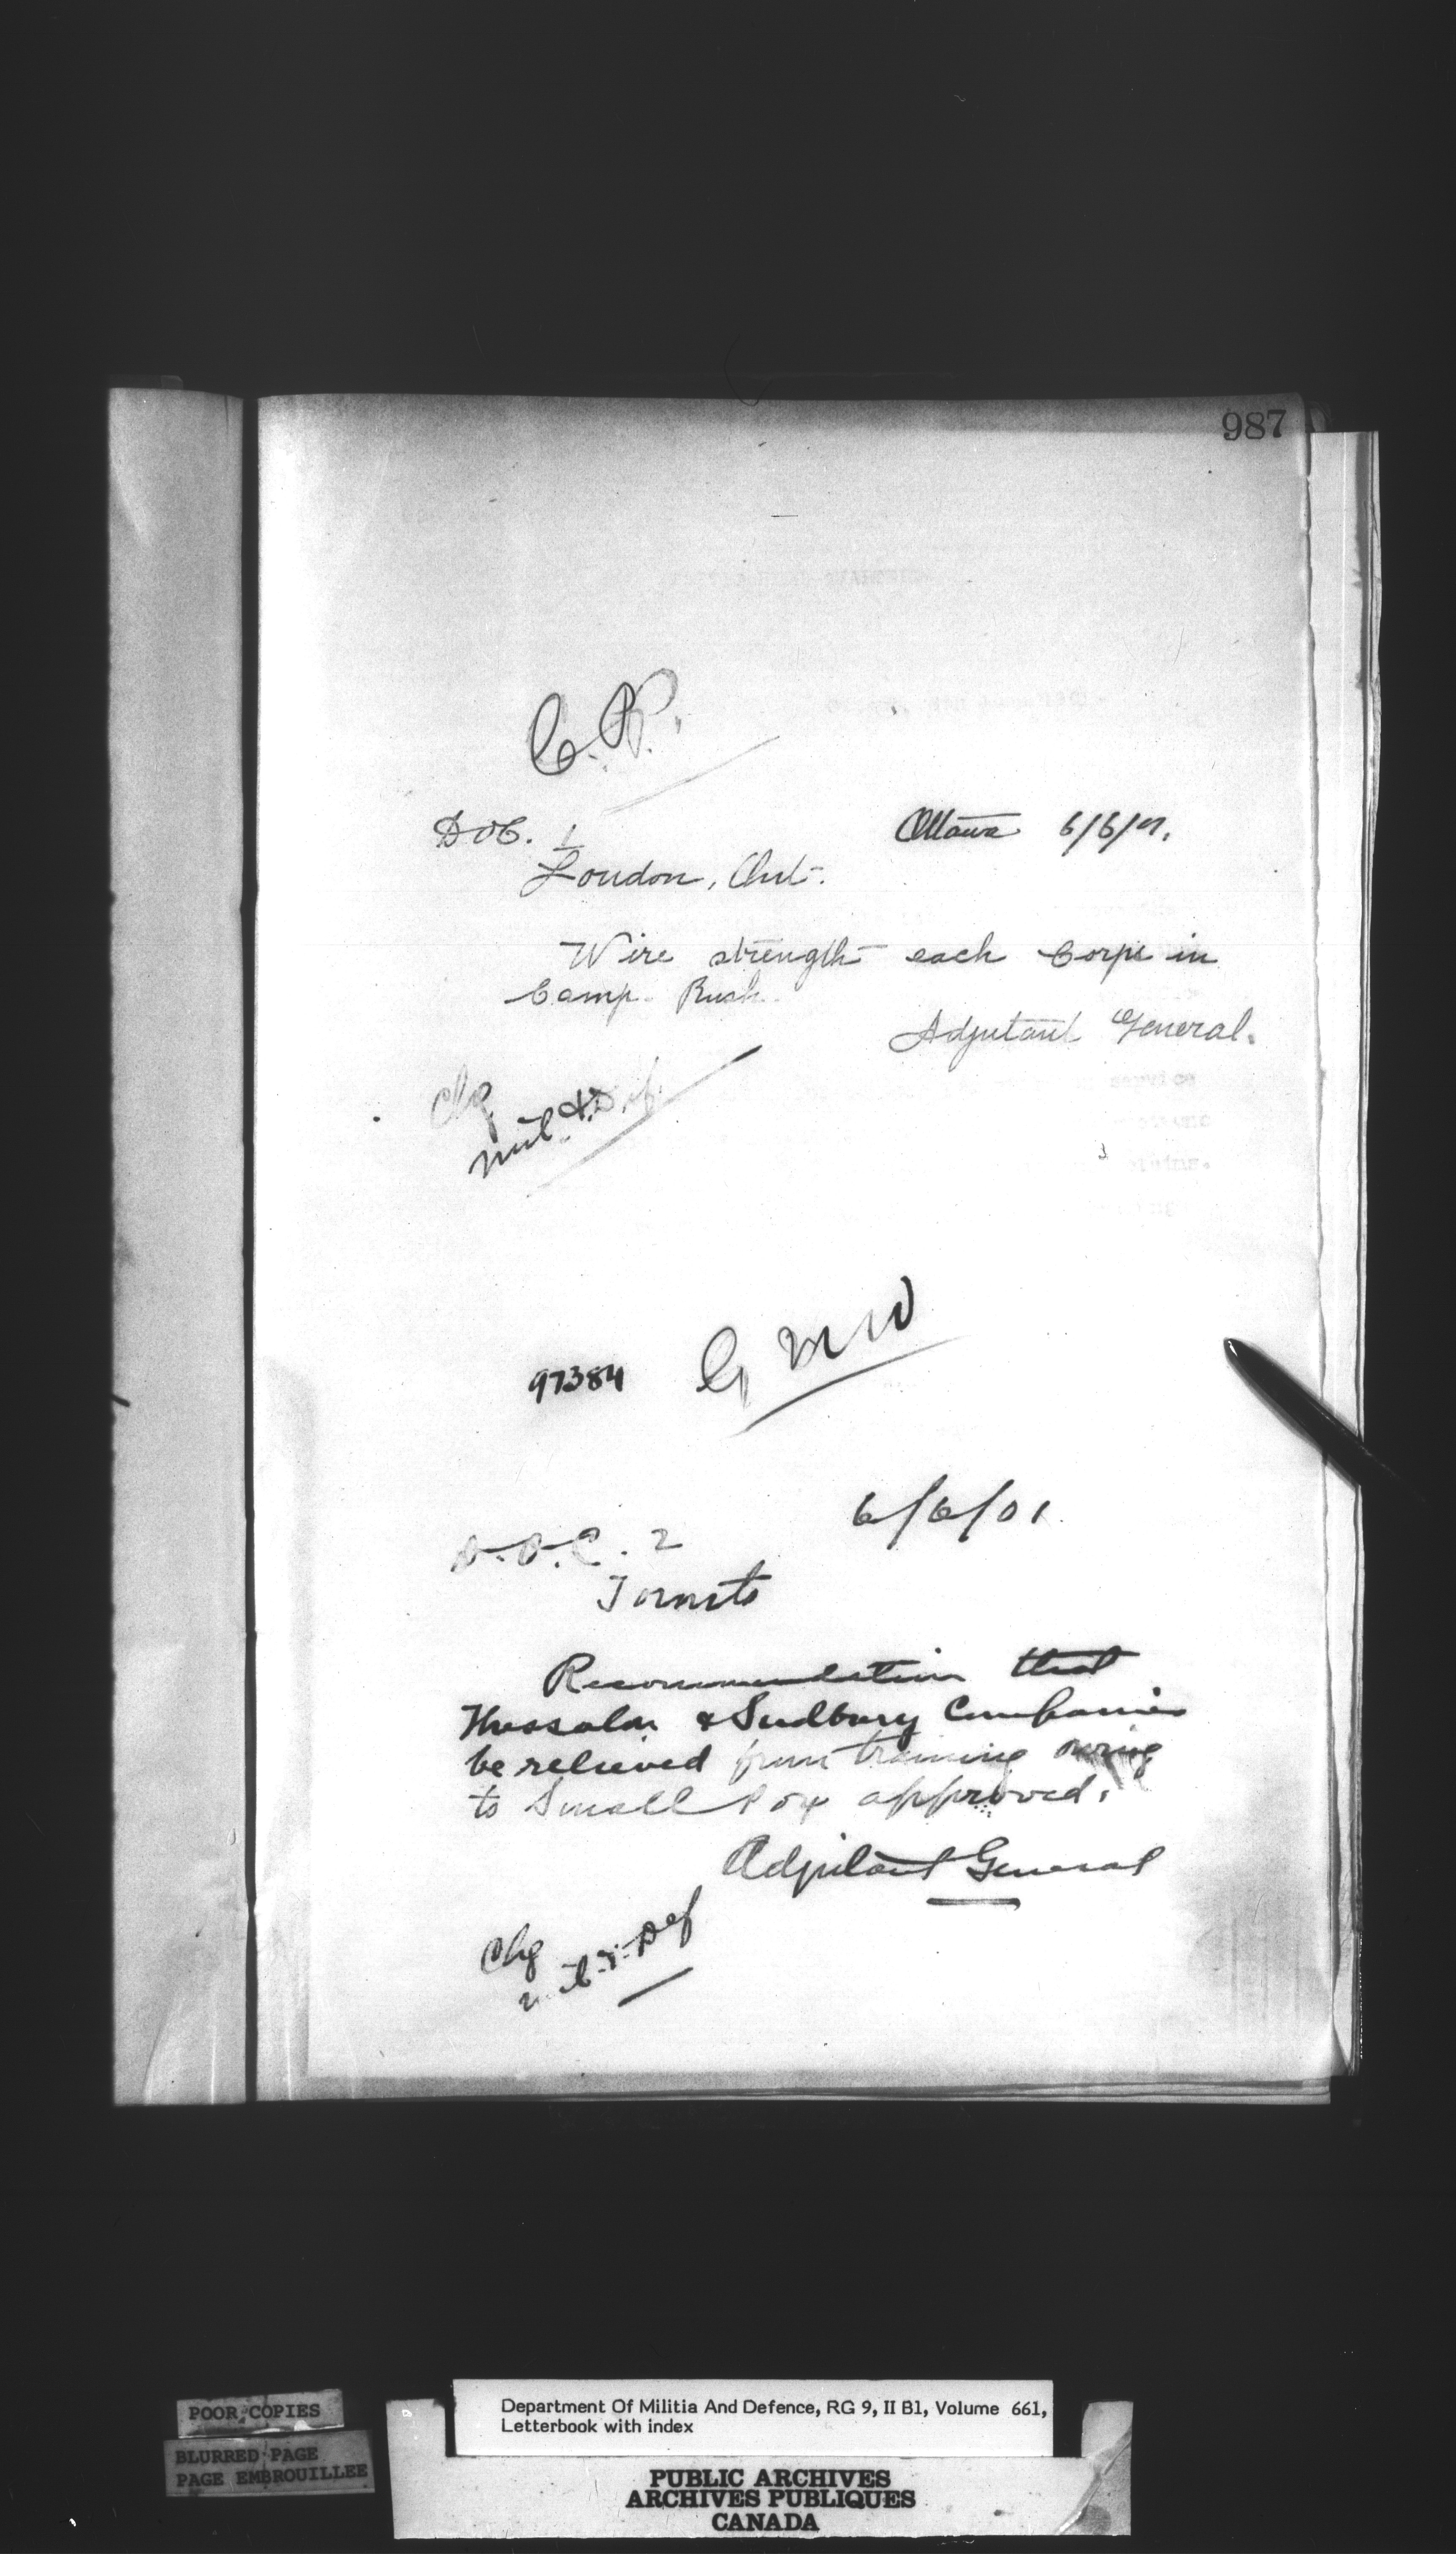 987
C.P.
DOC. 1
Ottawa 6/6/01.
London, Ont.
Wire strength each Corps in
Camp. Rush.
Adjutant General.
Chg
Mil. & Def.
97384
G N W
6/6/01.
D.O.C. 2
Toronto
Recommendation that
Thessalon & Sudbury Companies
be relieved from training owing
to Small Pox approved.
Adjutant General
Chg
Mil. & Def
POOR COPIES
BLURRED PAGE
PAGE EMBROUILLEE
Department Of Militia And Defence, RG 9, II B1, Volume 661,
Letterbook with index
PUBLIC ARCHIVES
ARCHIVES PUBLIQUES
CANADA